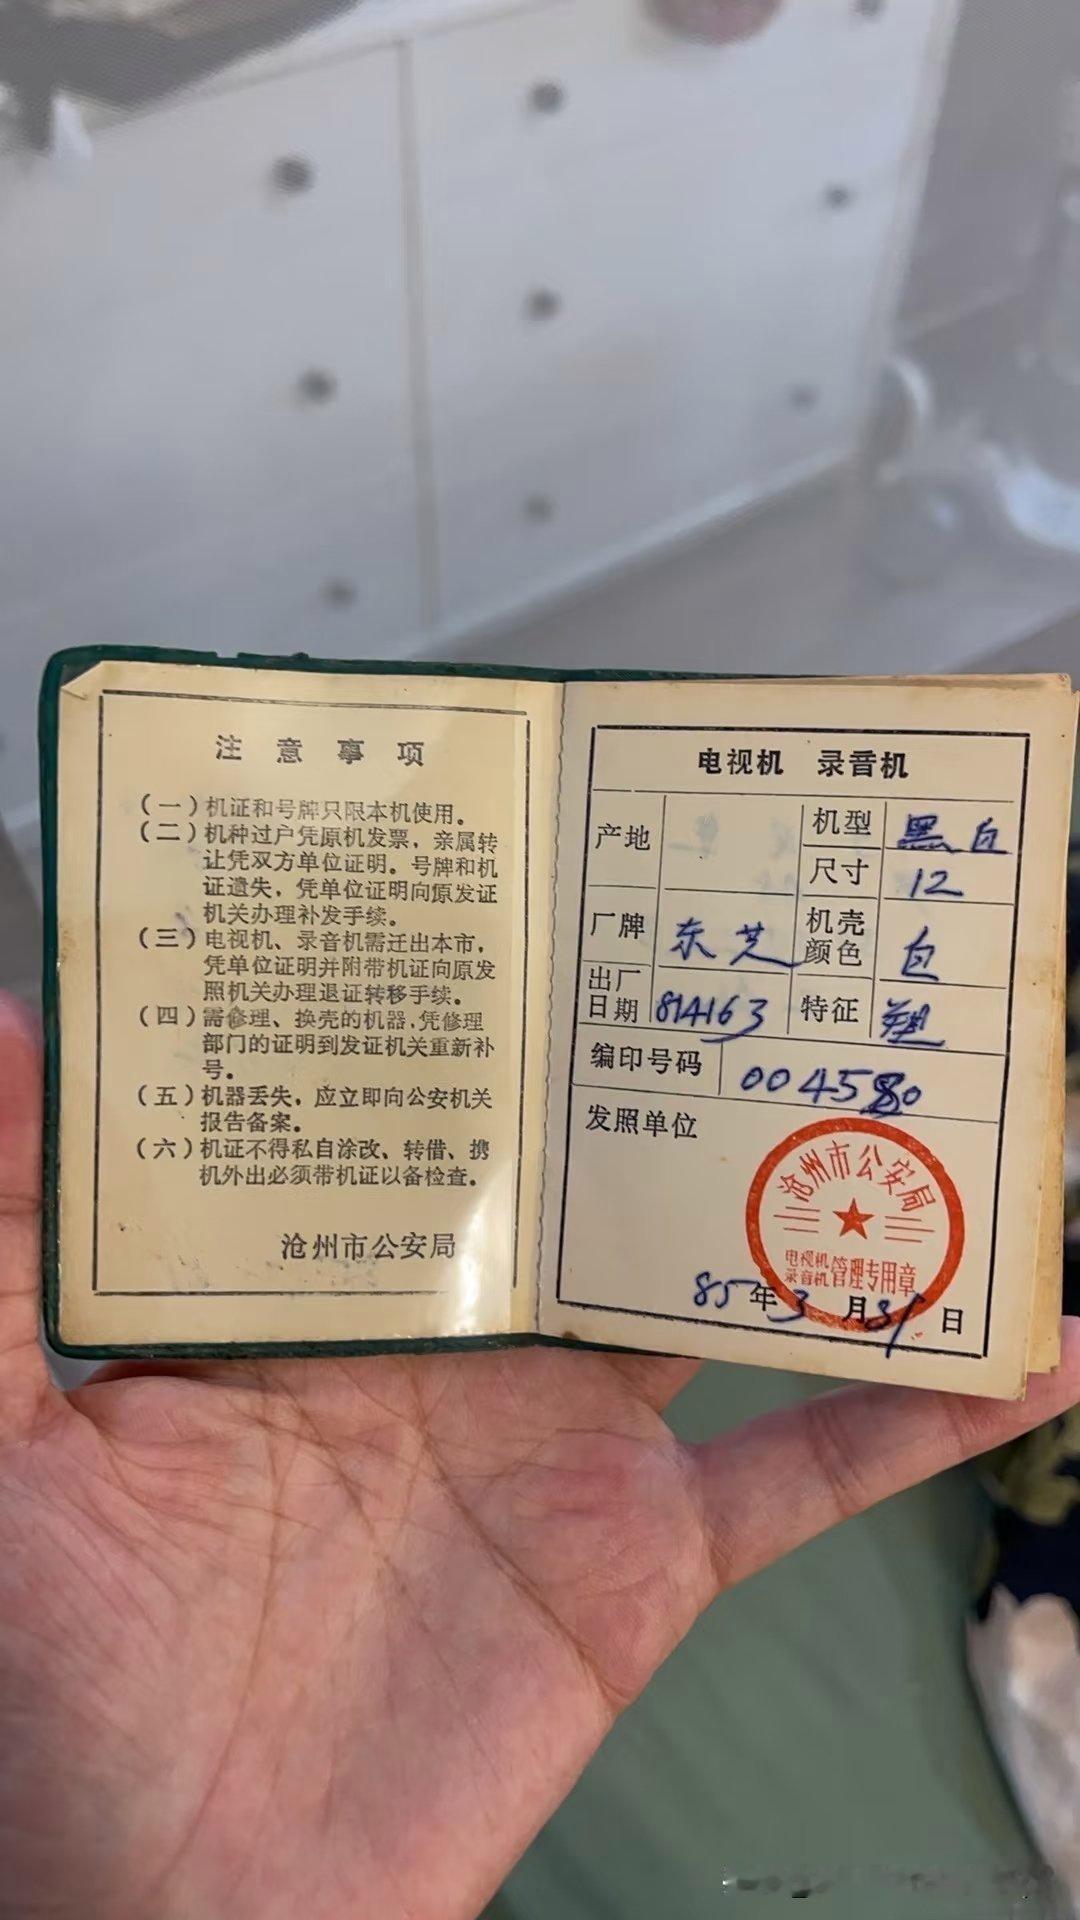 注意事项
（一）机证和号牌只限本机使用。
（二）机种过户凭原机发票，亲属转
让凭双方单位证明。号牌和机
证遗失，凭单位证明向原发证
机关办理补发手续。
（三）电视机、录音机需迁出本市，
凭单位证明并附带机证向原发
照机关办理退证转移手续。
（四）需修理、换壳的机器，凭修理
部门的证明到发证机关重新补
号。
（五）机器丢失，应立即向公安机关
报告备案。
（六）机证不得私自涂改、转借、携
机外出必须带机证以备检查。
沧州市公安局
电视机 录音机
产地
机型 黑白
尺寸 12
厂牌 东芝
机壳颜色 白
出厂日期 814163
特征
编印号码 004580
发照单位
沧州市公安局
电视机
录音机 管理专用章
85年3月31日